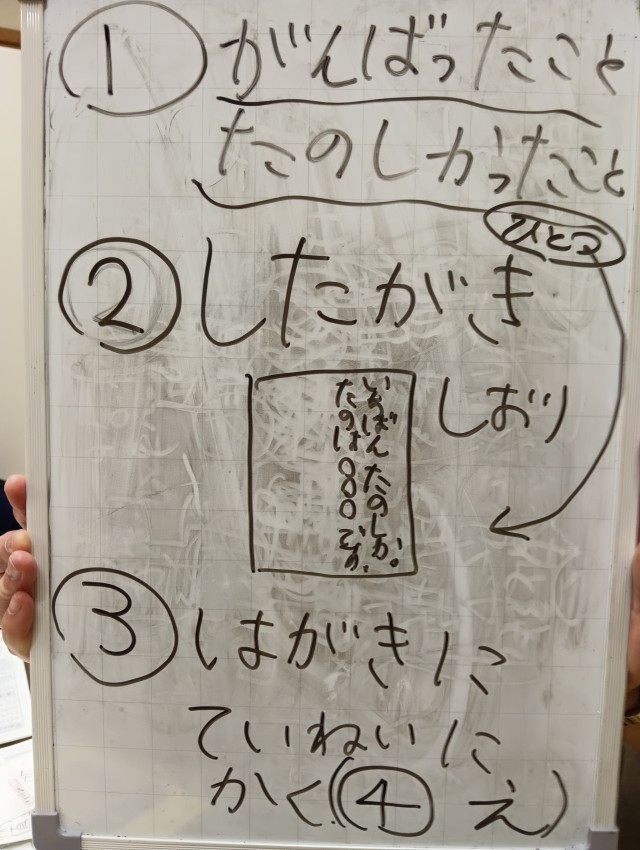 ① がんばったこと
たのしかったこと
ひとつ
② したがき
しおり
いちばん たのしか
たのは〇〇〇です。
③ はがきに
ていねいに
かく(④ え)